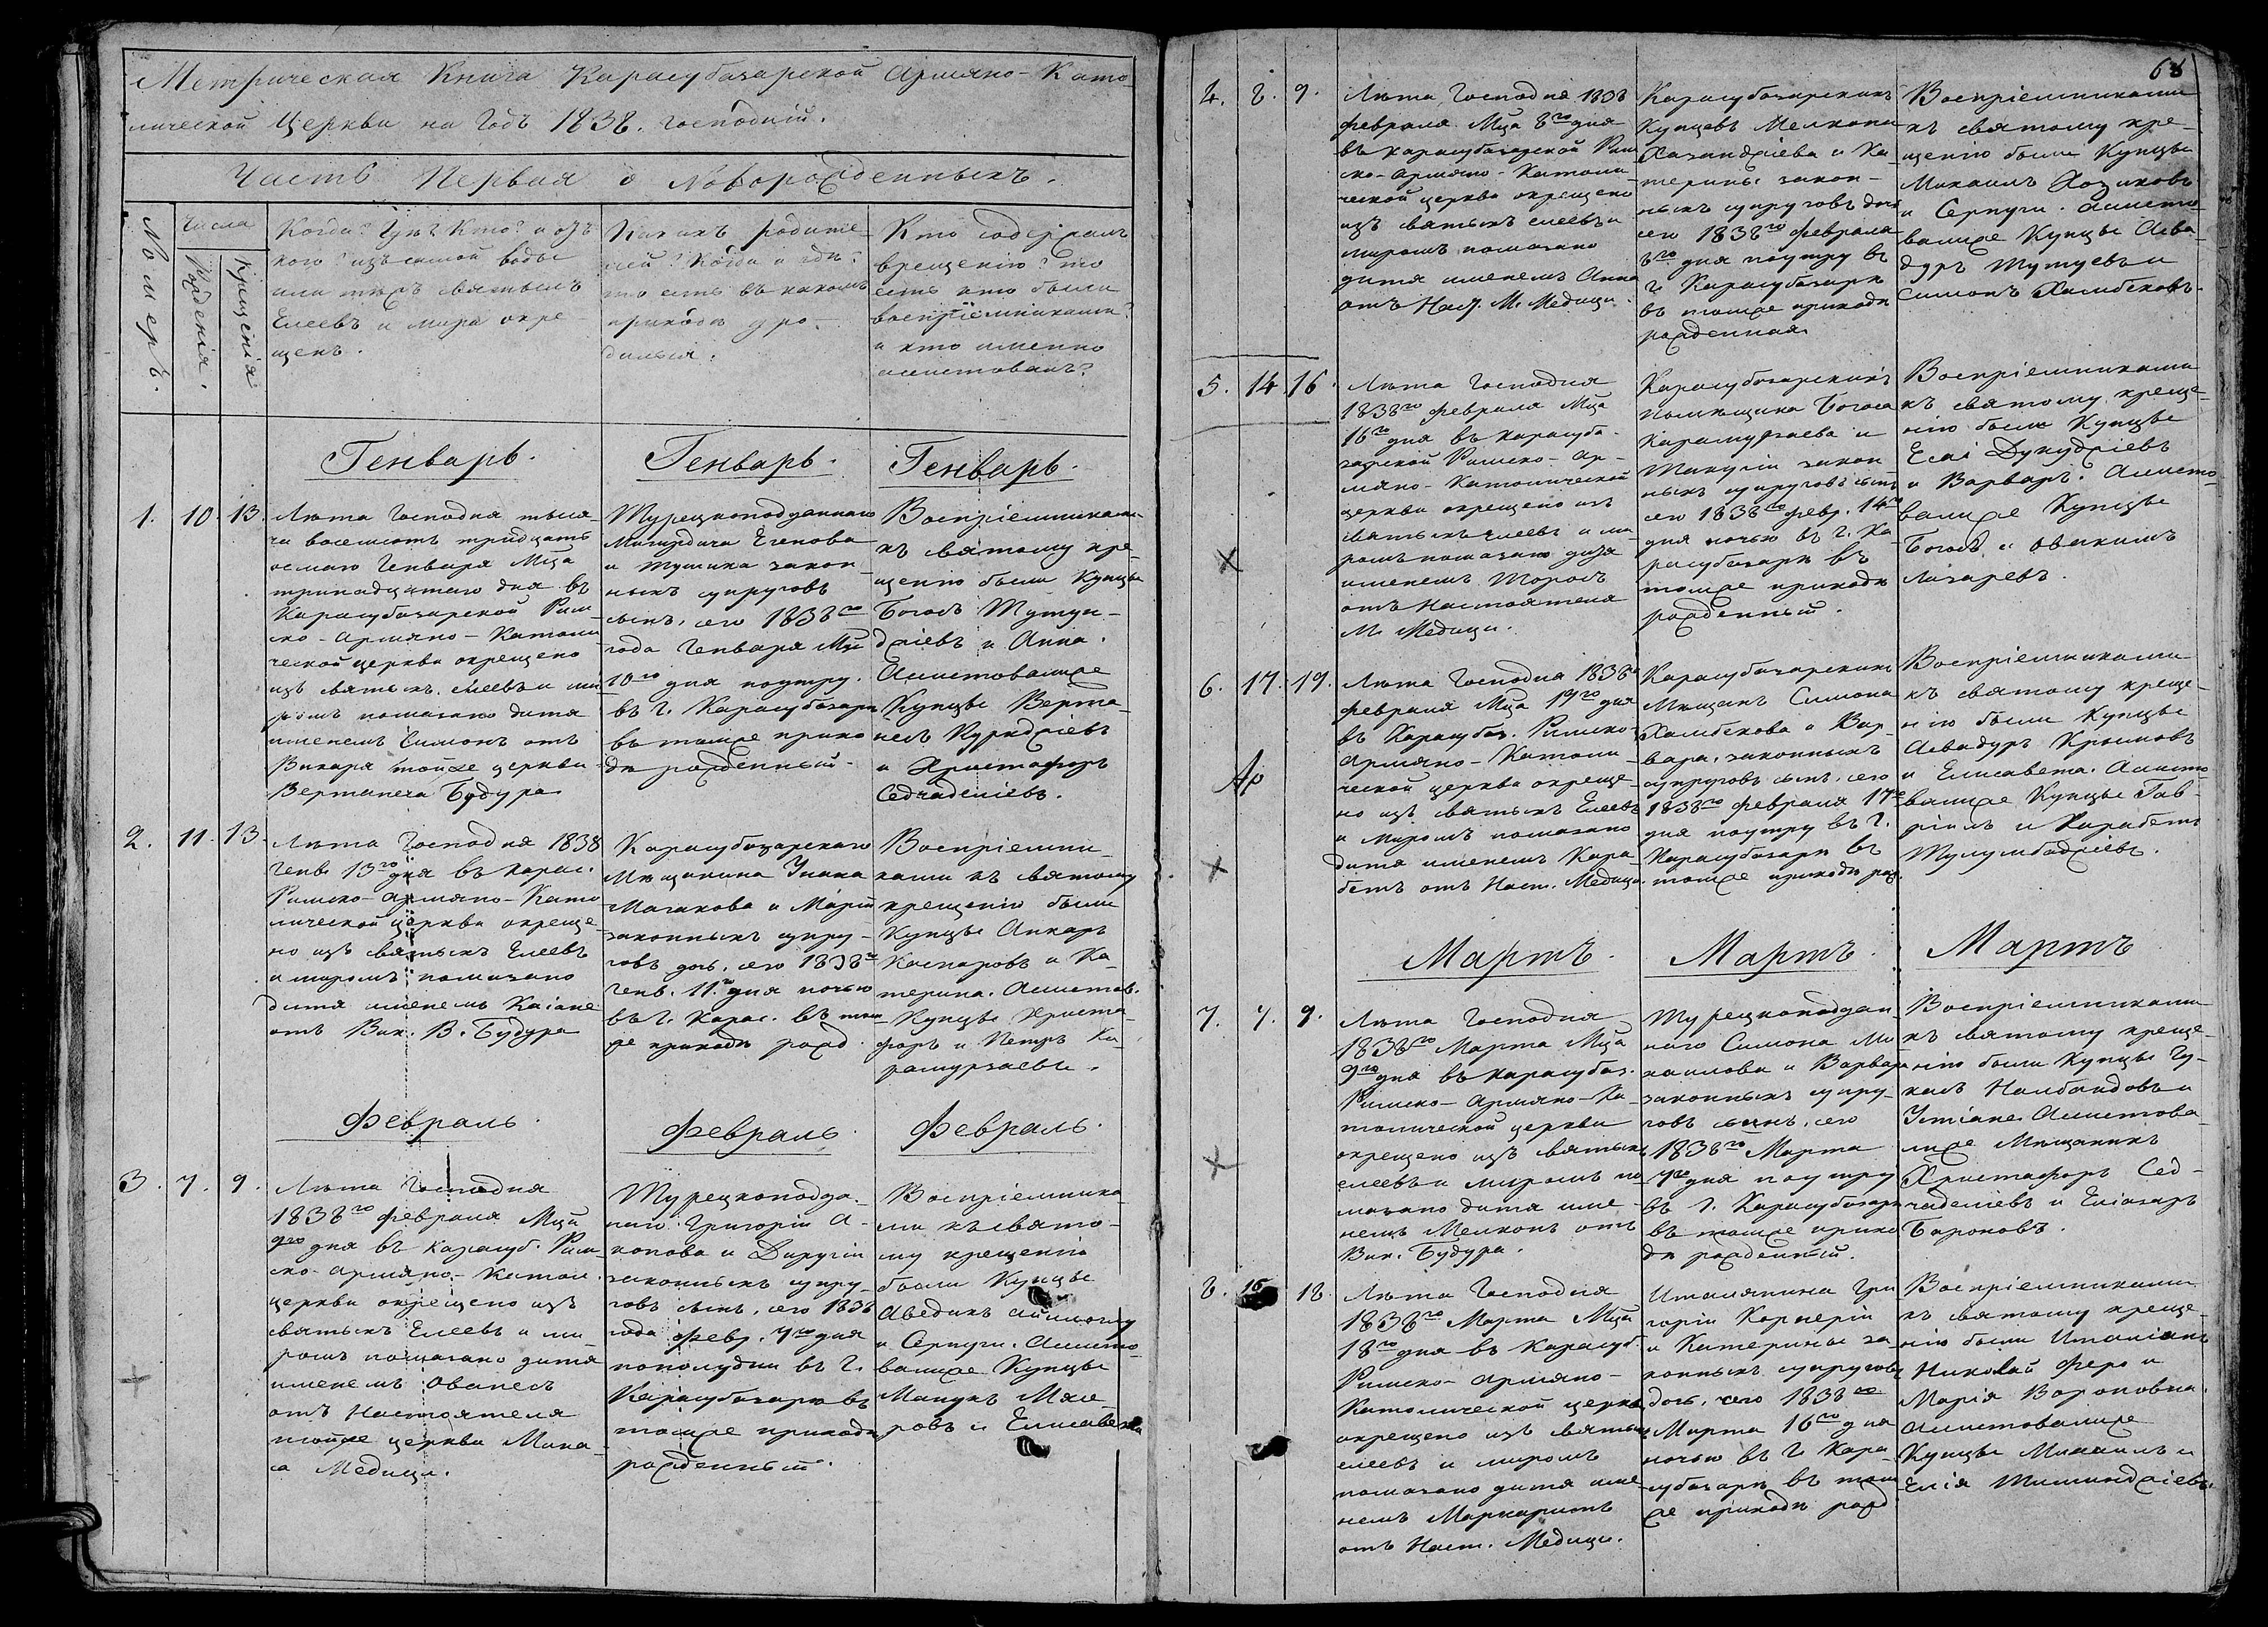 Метрическая Книга Карасубазарской Армяно-Като-
лической Церкви на Годъ 1838. господній.
Часть Первая о Новорожденныхъ.
Номеръ.
Числа
рожденія.
крещенія
Когда? Гдѣ? Кто? и отъ
кого? изъ самой воды
или тѣхъ святыхъ
Елеевъ и мира окре-
щенъ.
Какихъ родите-
лей? Когда и гдѣ?
то есть въ какомъ
приходѣ уро-
дился.
Кто содержалъ
крещенію? то
есть кто были
воспріемниками?
и кто именно
асистовалъ?
Генварь.
Генварь.
Генварь.
1. 10. 13.
Лѣта Господня тыся-
ча восемсотъ тридцать
осмаго Генваря Мца
тринадцатаго дня въ
Карасубазарской Рим-
ско-Армяно-Католи-
ческой церкви окрещено
изъ святыхъ елеевъ и ми-
ромъ помазано дитя
именемъ Симонъ отъ
Викаря тойже церкви
Вертанеса Будура
Турецкоподданнаго
Мигирдича Егенова
и Тушика закон-
ныхъ супруговъ
сынъ, сего 1838го
года Генваря Мца
10го дня поутру.
въ г. Карасубазарѣ
въ томже прихо-
дѣ рожденный.
Воспріемниками
къ святому кре-
щенію были Купцы
Богосъ Тутун-
джіевъ и Анна.
Асистовавше
Купцы Верта-
несъ Куюджіевъ
и Христафоръ
Седчаделіевъ.
2. 11. 13.
Лѣта Господня 1838
Генв. 13го дня въ Карас.
Римско-Армяно-Като-
лической церкви окреще-
но изъ святыхъ Елеевъ
и миромъ помазано
дитя именемъ Каіане
отъ Вик. В. Будура
Карасубазарскаго
Мѣщанина Унана
Магакова и Маріи
законныхъ супру-
говъ дочь, сего 1838го
Генв. 11го дня ночью
въ г. Карас. въ том-
же приходѣ рожд.
Воспріемни-
ками къ святому
крещенію были
Купцы Аккаръ
Каспаровъ и Ка-
терина. Асистов.
Купцы Христа-
форъ и Петръ Ка-
рамурзаевы.
Февраль.
Февраль.
Февраль.
3. 7. 9.
Лѣта Господня
1838го февраля Мца
9го дня въ Карасуб. Рим-
ско-Армяно-Катол.
церкви окрещено изъ
святыхъ Елеевъ и ми-
ромъ помазано дитя
именемъ Ованесъ
отъ Настоятеля
тойже церкви Мина-
са Медици.
Турецкоподда-
наго Григорія А-
копова и Диругіи
законныхъ супру-
говъ сынъ, сего 1838
года февр. 7го дня
пополудни въ г.
Карасубазарѣ въ
томже приходѣ
рожденный.
Воспріемника-
ми къ свято-
му крещенію
были Купцы
Аведикъ
и Серпуги. Асисто-
вавше Купцы
Манукъ
ровъ и Елисавета
68
4. 8. 9.
Лѣта Господня 1838
февраля Мца 8го дня
въ Карасубазарской Рим-
ско-Армяно-Католи-
ческой церкви окрещено
изъ святыхъ елеевъ и
миромъ помазано
дитя именемъ Анна
отъ Наст. М. Медици.
Карасубазарскихъ
Купцевъ Мелкона
Хазанджіева и Ка-
терины закон-
ныхъ супруговъ дочь
сего 1838го февраля
8го дня поутру въ
г. Карасубазарѣ
въ томже приходѣ
рожденная.
Воспріемниками
къ святому кре-
щенію были Купцы
Микаилъ Хозиковъ
и Серпуги. Асисто-
вавше Купцы Асва-
дуръ Тутуевъ и
Симонъ Халибековъ.
5. 14. 16.
Лѣта Господня
1838го февраля Мца
16го дня въ Карасуба-
зарской Римско-Ар-
мяно-Католической
церкви окрещено изъ
святыхъ елеевъ и ми-
ромъ помазано дитя
именемъ Торосъ
отъ Настоятеля
М. Медици.
Карасубазарскихъ
помѣщика Богоса
Карамурзаева и
Такугіи закон-
ныхъ супруговъ сынъ
сего 1838го февр. 14го
дня ночью въ г. Ка-
расубазарѣ въ
томже приходѣ
рожденный.
Воспріемниками
къ святому креще-
нію были Купцы
Есаі Дукуджіевъ
и Варваръ. Асисто-
вавше Купцы
Богосъ и Овакимъ
Лазаревъ.
6. 17. 19.
Лѣта Господня 1838го
февраля Мца 19го дня
въ Карасубаз. Римско-
Армяно-Католи-
ческой церкви окреще-
но изъ святыхъ Елеевъ
и Миромъ помазано
дитя именемъ Кара-
бетъ отъ Наст. Медици.
Ар
Карасубазарскихъ
Мѣщанъ Симона
Халибекова и Вар-
вара, законныхъ
супруговъ сынъ, сего
1838го февраля 17го
дня поутру въ г.
Карасубазарѣ въ
томже приходѣ рож.
Воспріемниками
къ святому креще-
нію были Купцы
Асвадуръ Крымовъ
и Елисавета. Асисто-
вавше Купцы Гав-
ріилъ и Карабетъ
Тулумбаджіевъ.
Мартъ.
Мартъ.
Мартъ
7. 7. 9.
Лѣта Господня
1838го Марта Мца
9го дня въ Карасубаз.
Римско-Армяно-Ка-
толической церкви
окрещено изъ святыхъ
елеевъ и миромъ по-
мазано дитя име-
немъ Мелконъ отъ
Вик. Будура.
Турецкоподдан-
наго Симона Ми-
каилова и Варвары
законныхъ супру-
говъ сынъ, сего
1838го Марта
7го дня поутру
въ г. Карасубазарѣ
въ томже прихо-
дѣ рожденный.
Воспріемниками
къ святому креще-
нію были Купцы Гу-
касъ Налбандовъ и
Устіане. Асистова-
вше Мѣщанинъ
Христафоръ Сед-
чаделіевъ и Еліазаръ
Бароновъ.
8. 16 18.
Лѣта Господня
1838го Марта Мца
18го дня въ Карасуб.
Римско-Армяно-
Католической церкви
окрещено изъ святыхъ
елеевъ и миромъ
помазано дитя име-
немъ Маркаритъ
отъ Наст. Медици.
Италянина Гри-
горіи Корнеріи
и Катерины за-
конныхъ супруговъ
дочь, сего 1838го
Марта 16го дня
ночью въ г. Кара-
субазарѣ въ том-
же приходѣ рожд
Воспріемниками
къ святому креще-
нію были Италіанъ
Николай Феро и
Марія Вороновна.
Асистовавше
Купцы Микаилъ и
Елія Тишинджіевы.